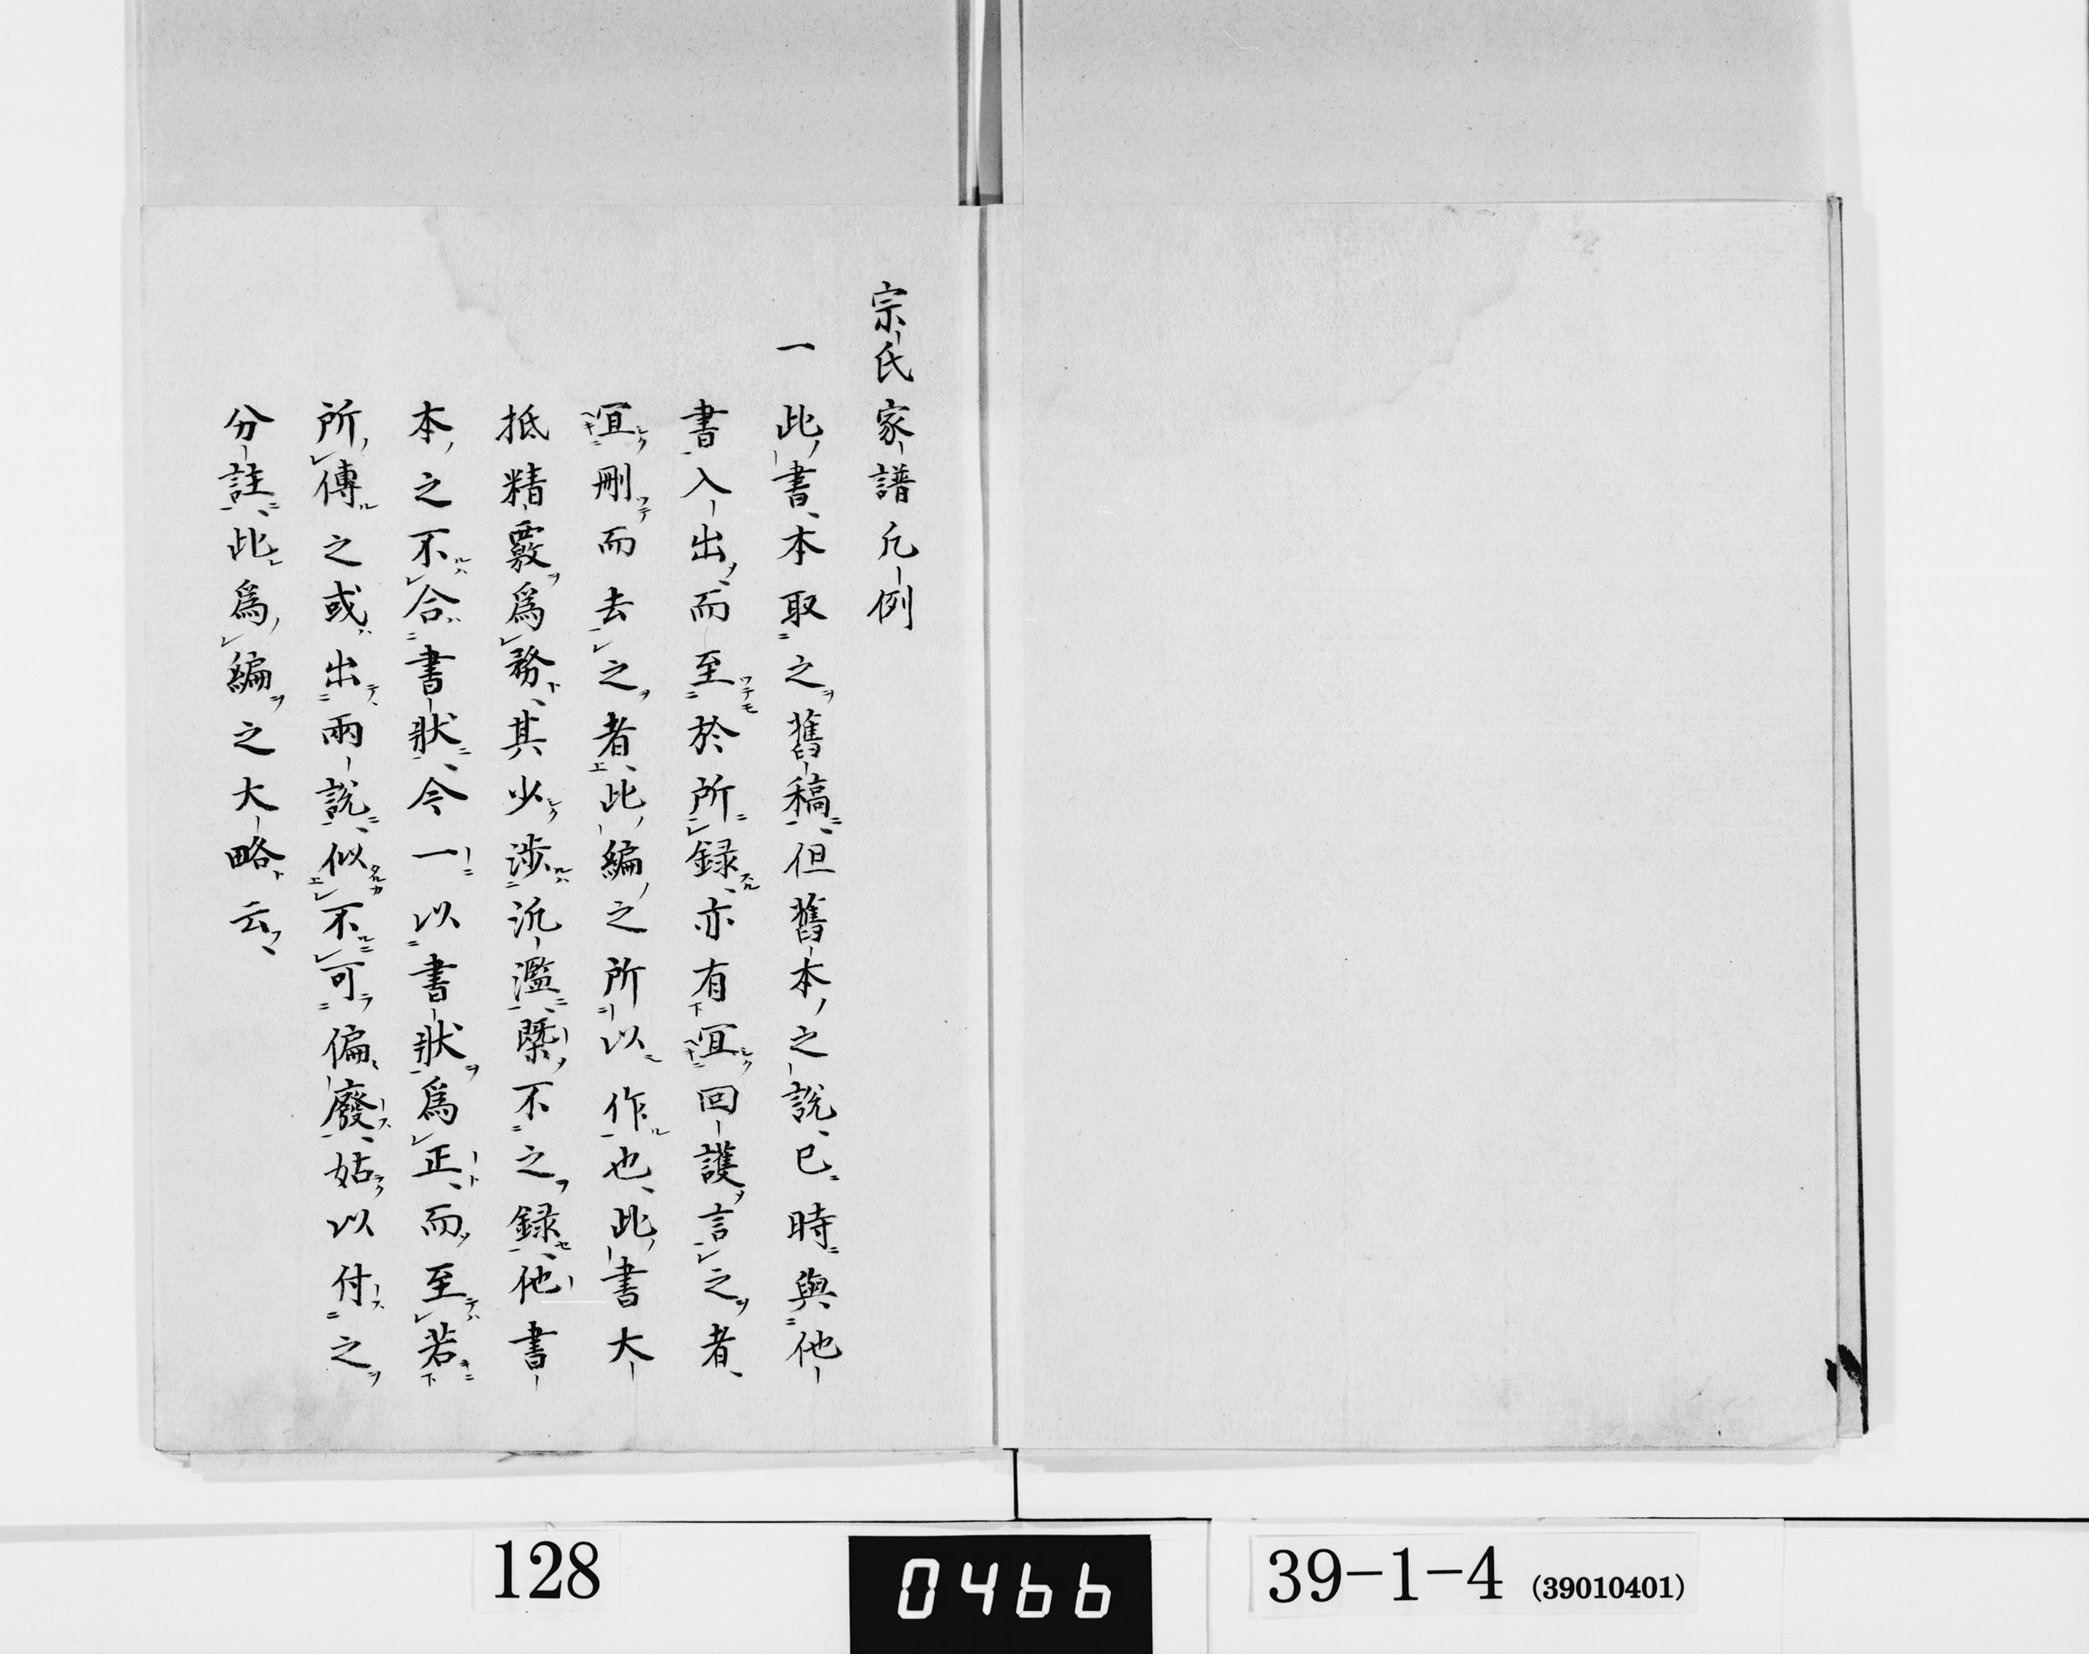 宗氏家譜凡例
一 此書本取之舊稿但舊本之説已時與他
書入出而至於所録亦有冝回護言之者
冝刪而去之者此編之所以作也此書大
抵精覈爲務其少涉汎濫槩不之録他書
本之不合書狀今一以書狀爲正而至若
所傳之或出兩説似不可偏廢姑以付之
分註此爲編之大略云
128
0466
39-1-4 (39010401)